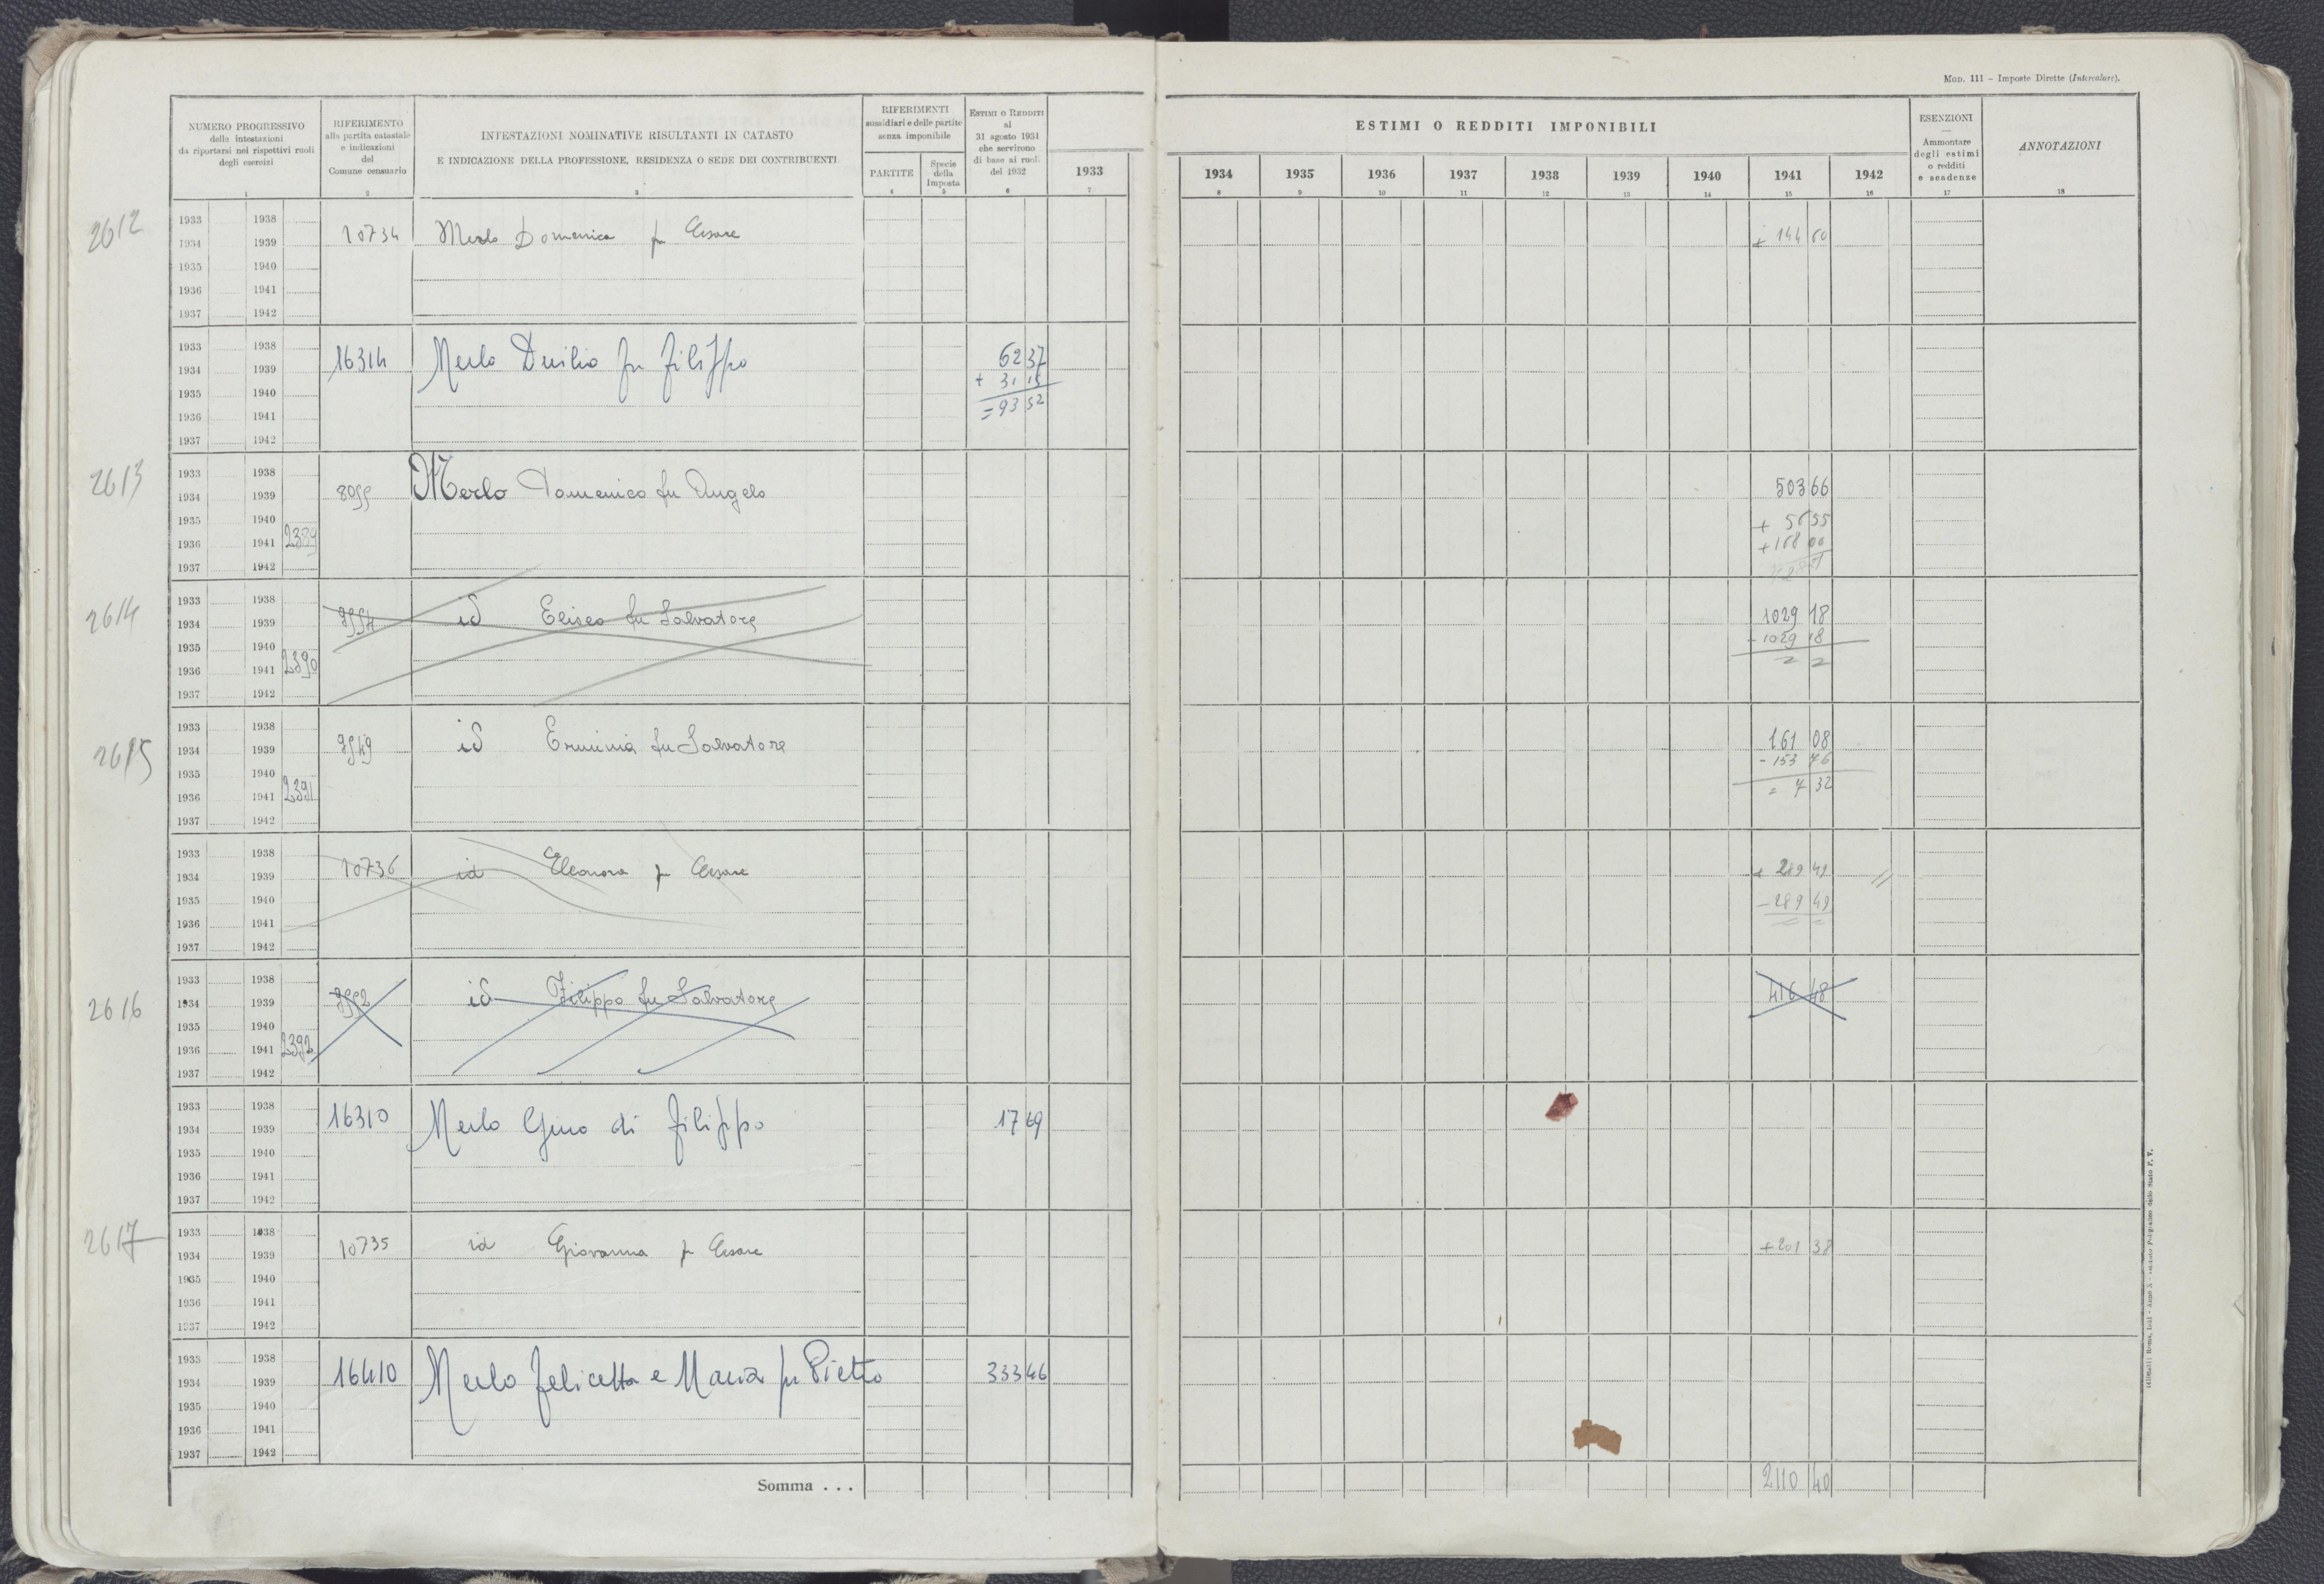 Mod. 111 – Imposte Dirette (Intercalare).
NUMERO PROGRESSIVO
delle intestazioni
da riportarsi nei rispettivi ruoli
degli esercizi
1
RIFERIMENTO
alla partita catastale
e indicazioni
del
Comune censuario
2
INTESTAZIONI NOMINATIVE RISULTANTI IN CATASTO
E INDICAZIONE DELLA PROFESSIONE, RESIDENZA O SEDE DEI CONTRIBUENTI
3
RIFERIMENTI
sussidiari e delle partite
senza imponibile
PARTITE
4
Specie
della
Imposta
5
ESTIMI O REDDITI
al
31 agosto 1931
che servirono
di base ai ruoli
del 1932
6
1933
7
ESTIMI O REDDITI IMPONIBILI
1934 1935 1936 1937 1938 1939 1940 1941 1942
8 9 10 11 12 13 14 15 16
ESENZIONI
—
Ammontare
degli estimi
o redditi
e scadenze
17
ANNOTAZIONI
18
2612
1933 1938
1934 1939 10734 Merlo Domenica fu Cesare + 144 60
1935 1940
1936 1941
1937 1942
1933 1938
1934 1939 16314 Merlo Duilio fu Filippo 62 37
1935 1940 + 31 15
1936 1941 = 93 52
1937 1942
2613
1933 1938
1934 1939 8099 Merlo Domenico fu Angelo 503 66
1935 1940 + 56 55
1936 1941 2389 + 168 00
1937 1942
2614
1933 1938
1934 1939 id Eliseo fu Salvatore 1029 18
1935 1940 - 1029 18
1936 1941 2390
1937 1942
2615
1933 1938
1934 1939 id Erminia fu Salvatore 161 08
1935 1940 - 153 76
1936 1941 2391 = 7 32
1937 1942
1933 1938
1934 1939 10736 id Eleonora fu Cesare + 289 49 //
1935 1940 - 289 49
1936 1941
1937 1942
2616
1933 1938
1934 1939 id Filippo fu Salvatore 416 48
1935 1940
1936 1941 2392
1937 1942
1933 1938
1934 1939 16310 Merlo Gino di Filippo 17 69
1935 1940
1936 1941
1937 1942
2617
1933 1938
1934 1939 10735 id Giovanna fu Cesare + 201 38
1935 1940
1936 1941
1937 1942
1933 1938
1934 1939 16410 Merlo Felicetta e Maria fu Pietro 333 46
1935 1940
1936 1941
1937 1942
Somma . . . 2110 40